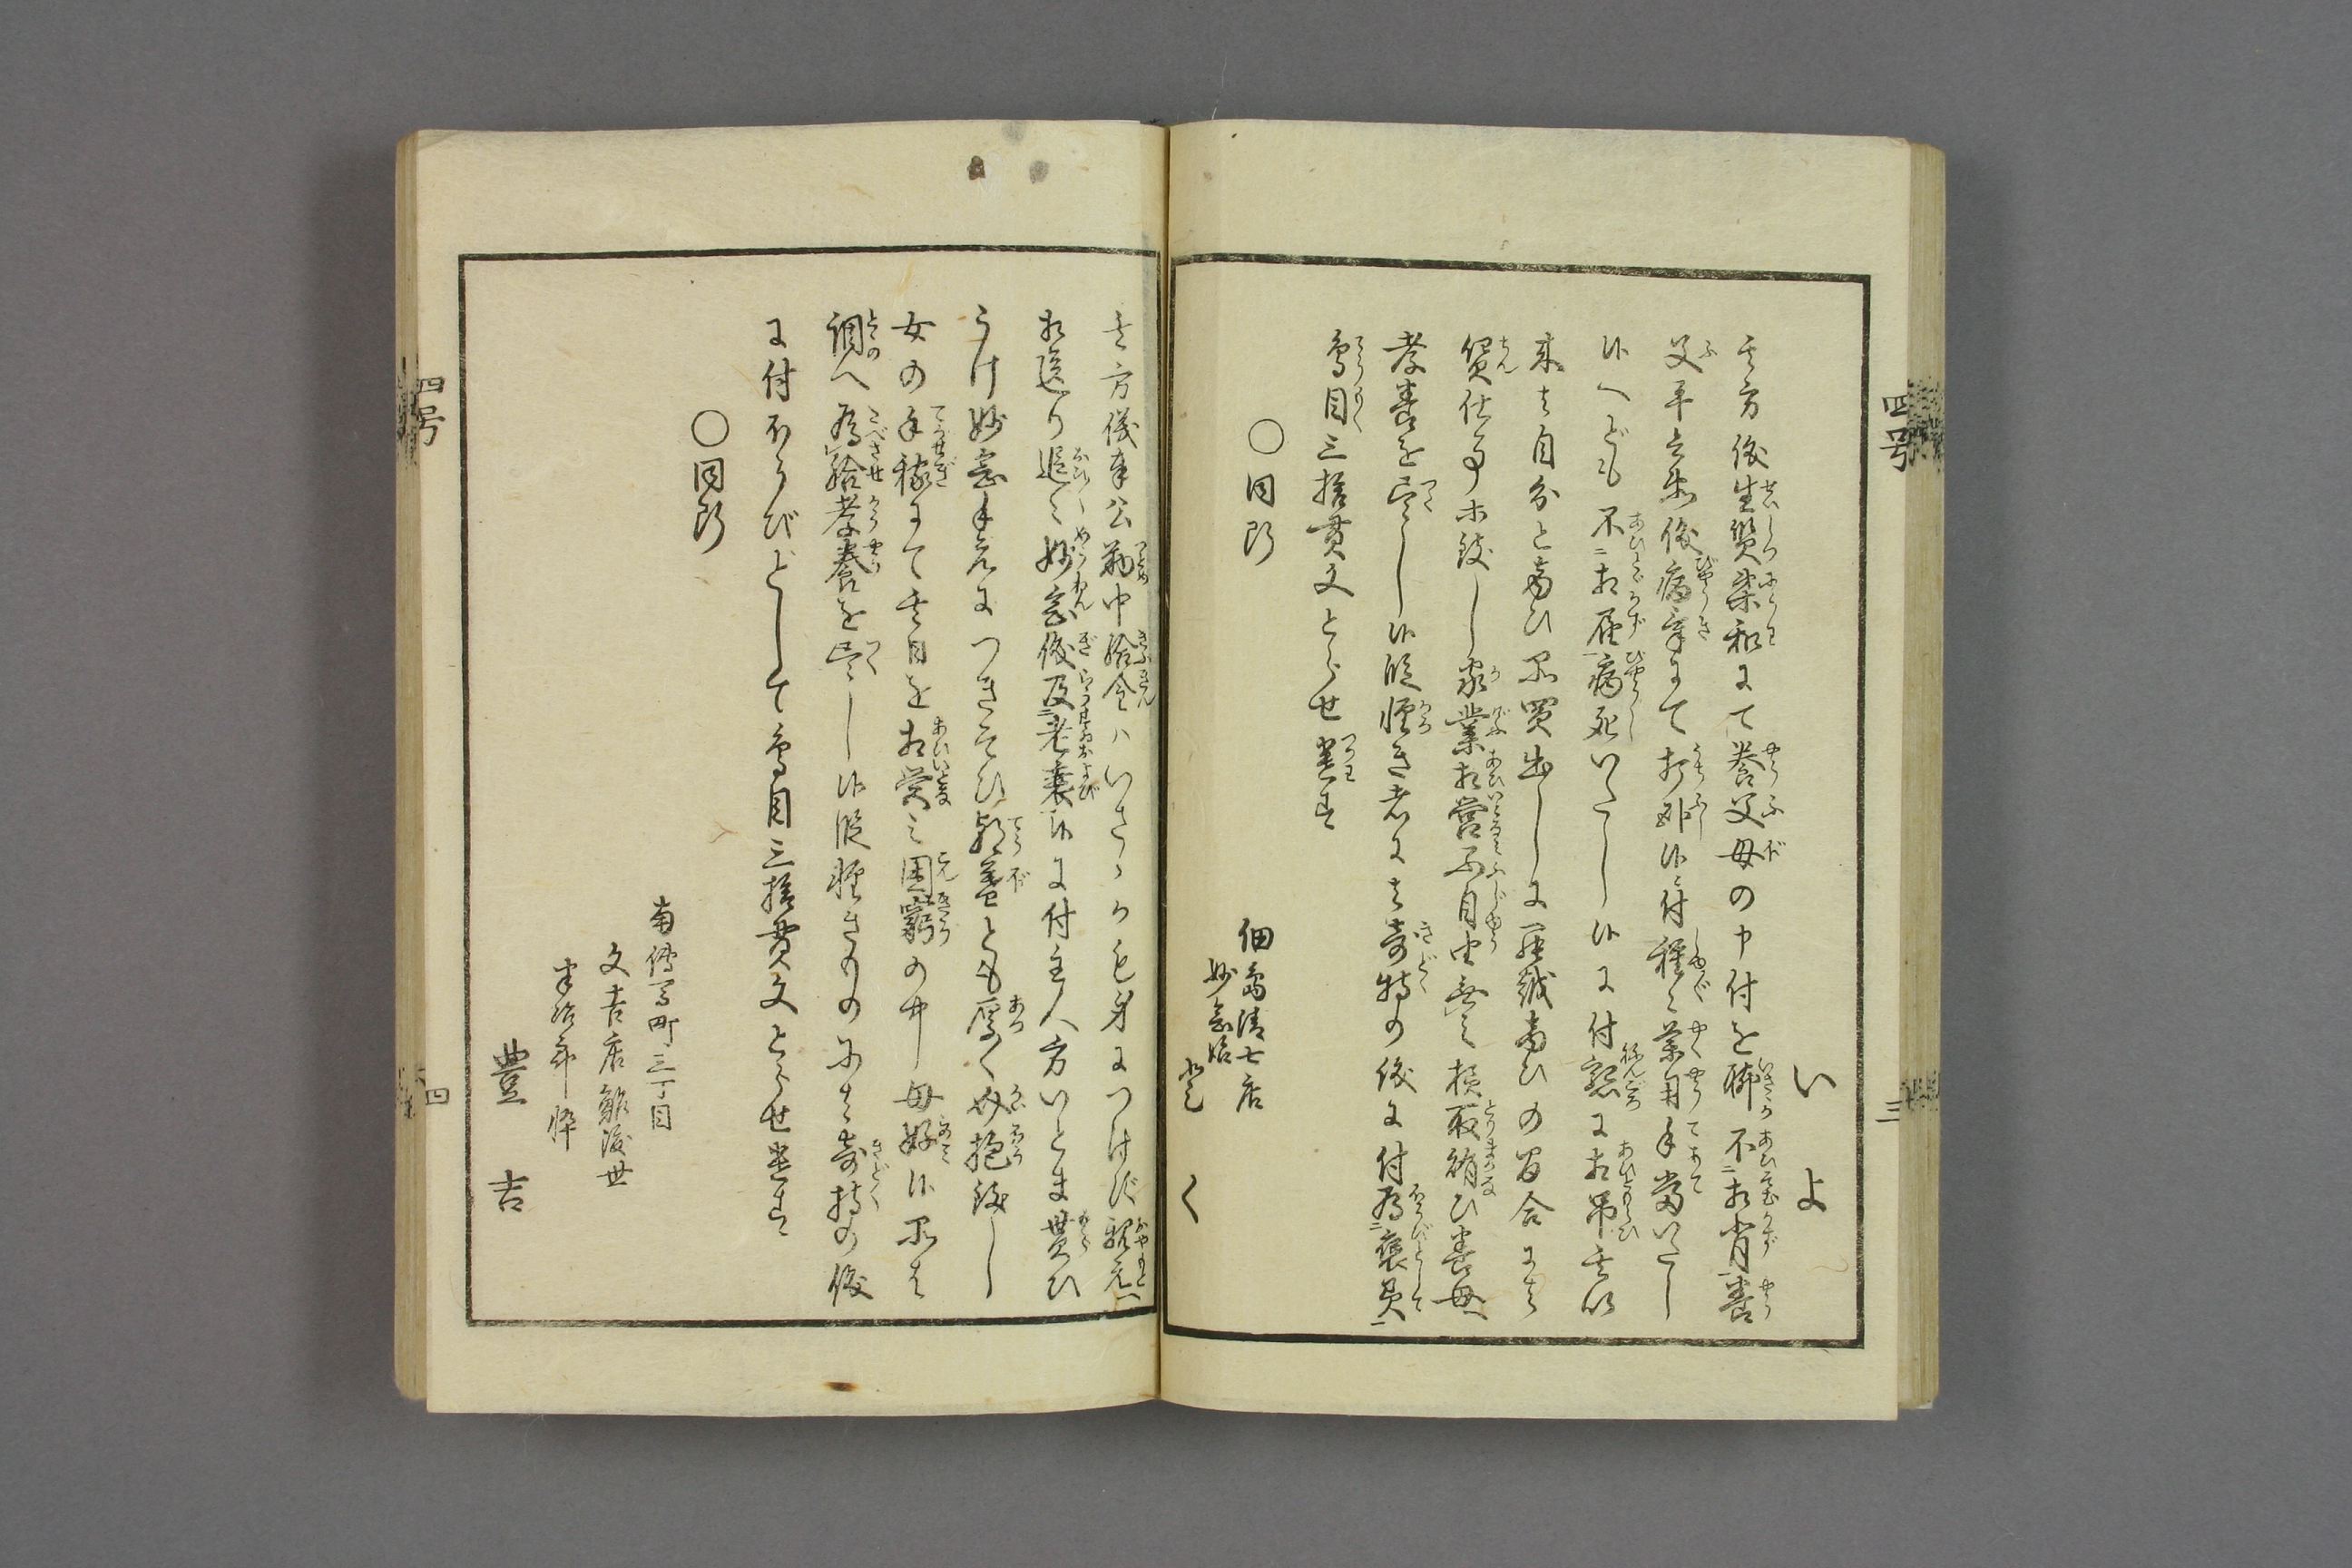 四号
三
いよ
其方儀生質柔和にて養父母の申付を聊不相背養
父平 儀病気にて打臥候ニ付種々薬用手当いたし
候へども不相届病死いたし候に付懇に相弔其以
来は自分と商ひ品買出しに罷越商ひの間合には
賃仕事等致し家業相営不自由無之様取賄ひ養母へ
孝養を尽し候段軽き者には奇特の儀に付為褒美
鳥目三拾貫文とらせ遣す
〇同断
佃島清七店
妙念娘
く
其方儀奉公勤中給金ハいさゝかも身につけず親元へ
相送り追々妙念儀及老衰候に付主人方いとま貰ひ
うけ妙念手元につきそひ朝暮とも厚く介抱致し
女の手稼にて其日を相営ミ困窮の中母好候品は
調へ為給孝養を尽し候段軽きものには奇特の儀
に付ほうびとして鳥目三拾貫文とらせ遣す
〇同断
南伝馬町三丁目
文吉店
半次郎忰
豊吉
四号
四